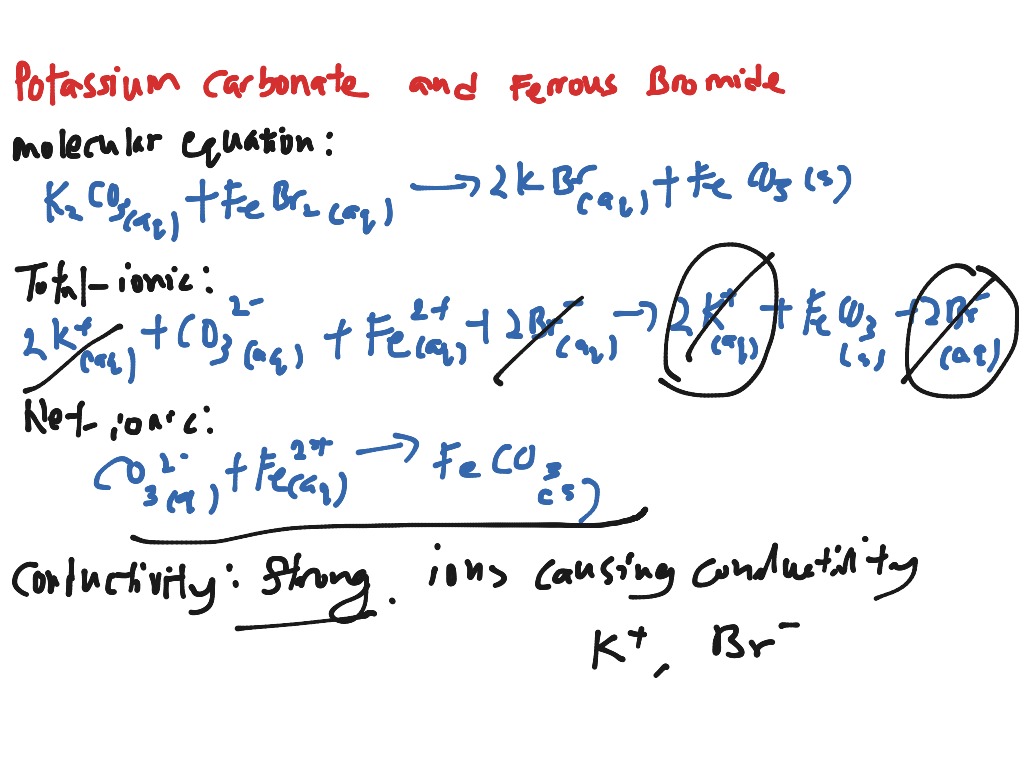 Potassium Carbonate and Ferrous Bromide
molecular equation:
K₂CO₃(aq) + FeBr₂(aq) → 2KBr(aq) + FeCO₃(s)
Total-ionic:
2K⁺(aq) + CO₃²⁻(aq) + Fe²⁺(aq) + 2Br⁻(aq) → 2K⁺(aq) + FeCO₃(s) + 2Br⁻(aq)
Net-ionic:
CO₃²⁻(aq) + Fe²⁺(aq) → FeCO₃(s)
Conductivity: Strong. ions causing conductivity
K⁺, Br⁻